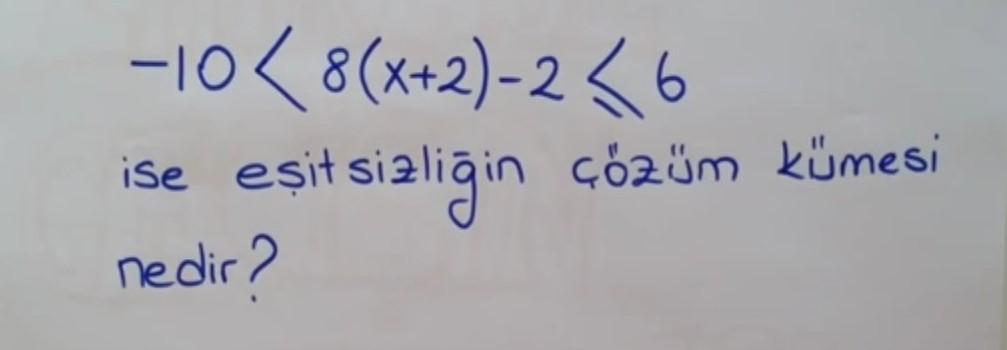 -10 < 8(x+2)-2 ⩽ 6
ise eşitsizliğin çözüm kümesi
nedir?